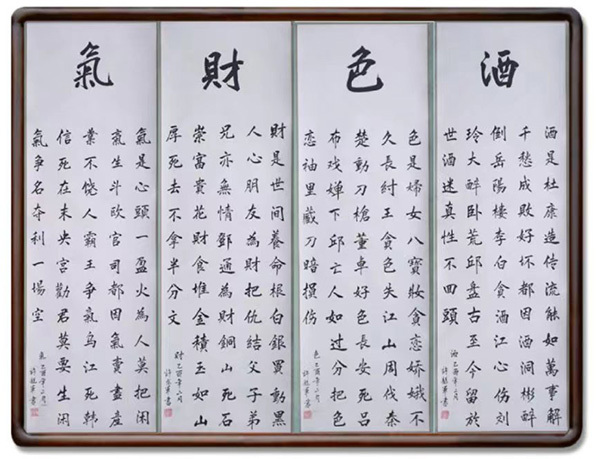 酒
酒是杜康造传流能如萬事解
千愁成敗好坏都因酒洞彬醉
倒岳陽楼李白貪酒江心伤刘
玲大醉卧荒邱盘古至今留於
世酒迷真性不回頭
酒乙酉年二月
色
色是婦女八寶妝貪恋娇娥不
久長紂王貪色失江山周伐秦
楚動刀槍董卓好色長安死吕
布戏婵下邱亡人如过分把色
恋袖里藏刀暗损伤
色乙酉年二月
財
財是世间養命根白銀買動黑
人心朋友為財把仇結父子弟
兄亦無情鄧通為財銅山死石
崇富貴花財食堆金積玉如山
厚死去不拿半分文
財乙酉年二月
氣
氣是心頭一盈火為人莫把闲
氣生斗欧官司都因氣賣盡産
業不饶人霸王争氣乌江死韩
信死在未央宫勸君莫要生闲
氣争名夺利一場空
氣乙酉年二月